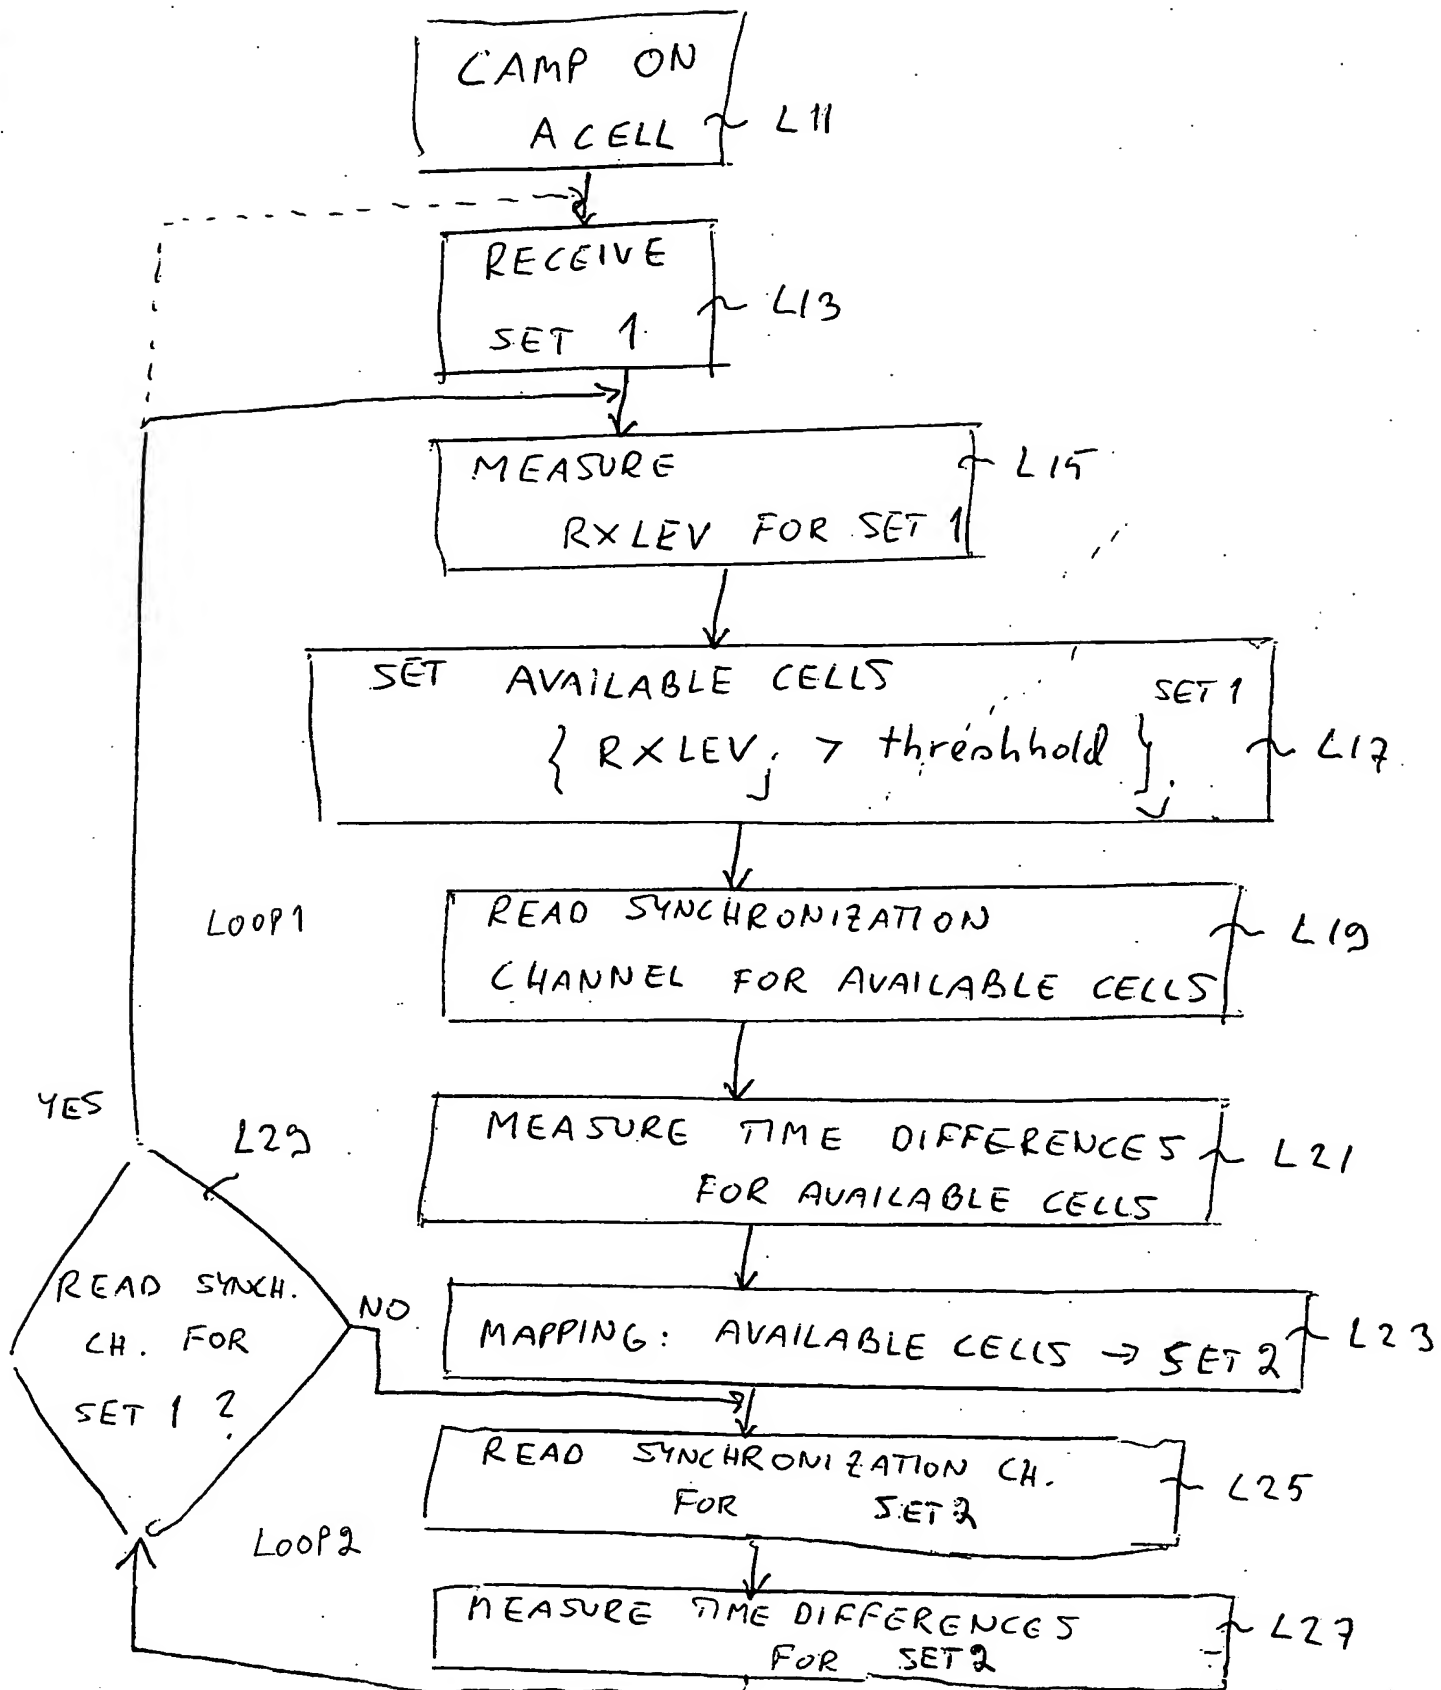 CAMP ON
A CELL
L11
RECEIVE
SET 1
L13
MEASURE
RXLEV FOR SET 1
L15
SET AVAILABLE CELLS
SET 1
{ RXLEV j > threshhold } j
L17
LOOP1
READ SYNCHRONIZATION
CHANNEL FOR AVAILABLE CELLS
L19
YES
L29
MEASURE TIME DIFFERENCES
FOR AVAILABLE CELLS
L21
READ SYNCH.
CH. FOR
SET 1 ?
NO
MAPPING: AVAILABLE CELLS → SET 2
L23
READ SYNCHRONIZATION CH.
FOR SET2
L25
LOOP2
MEASURE TIME DIFFERENCES
FOR SET2
L27